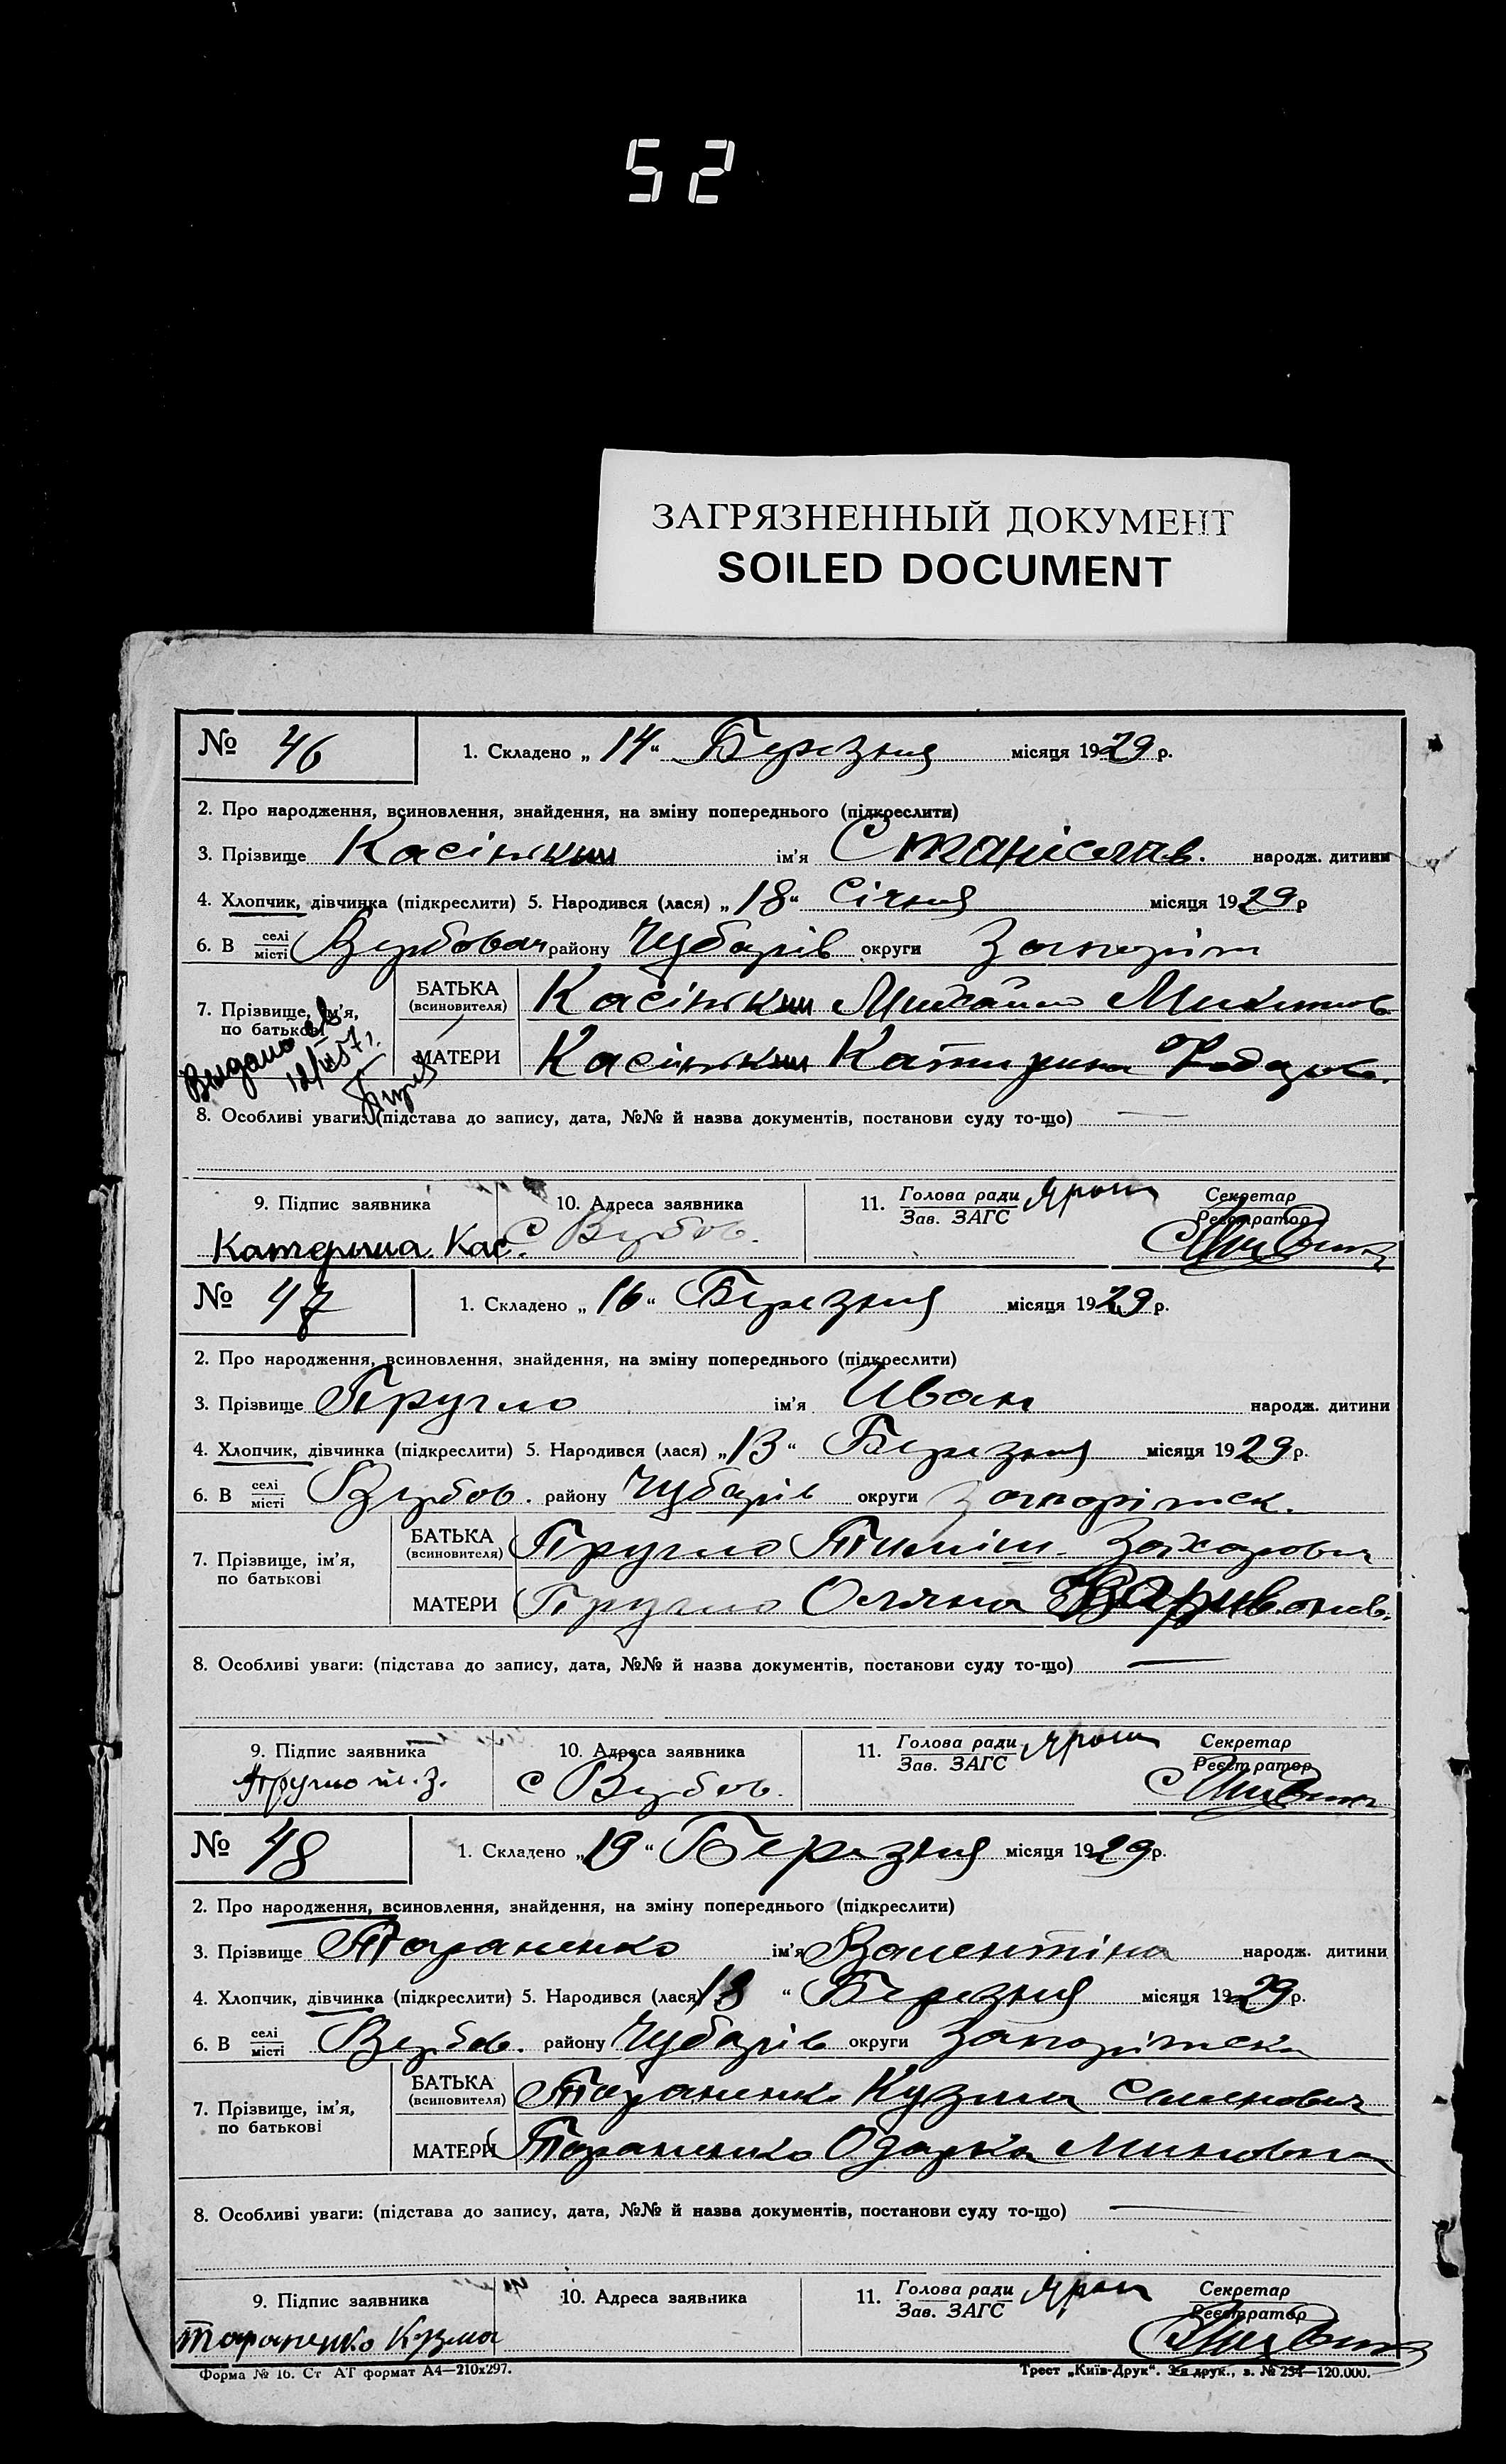 52
ЗАГРЯЗНЕННЫЙ ДОКУМЕНТ
SOILED DOCUMENT
№ 46 1. Складено „ 14 “ Березня місяця 1929 р.
2. Про народження, всиновлення, знайдення, на зміну попереднього (підкреслити)
3. Прізвище ім'я Станіслав. народж. дитини
4. Хлопчик, дівчинка (підкреслити) 5. Народився (лася) „ 18 “ Січня місяця 1929 р
6. В селі/місті Вербован району Чубарів округи Запоріж
7. Прізвище, ім'я, по батькові БАТЬКА (всиновителя) Михайло Микитов
Выдано 12/ 57 г.
МАТЕРИ Катирина Федоров.
8. Особливі уваги: (підстава до запису, дата, №№ й назва документів, постанови суду то-що) —
9. Підпис заявника 10. Адреса заявника 11. Голова ради/Зав. ЗАГС Ярош Секретар/Реєстратор
Катерина Кас. С Вербов.
№ 47 1. Складено „ 16 “ Березня місяця 1929 р.
2. Про народження, всиновлення, знайдення, на зміну попереднього (підкреслити)
3. Прізвище Пругло ім'я Иван народж. дитини
4. Хлопчик, дівчинка (підкреслити) 5. Народився (лася) „ 13 “ Березня місяця 1929 р.
6. В селі/місті Вербов. району Чубарів округи Запоріжск.
7. Прізвище, ім'я, по батькові БАТЬКА (всиновителя) Пругло Тиміш. Захарович
МАТЕРИ Пругло Оляна Варивонов.
8. Особливі уваги: (підстава до запису, дата, №№ й назва документів, постанови суду то-що) —
9. Підпис заявника 10. Адреса заявника 11. Голова ради/Зав. ЗАГС Ярош Секретар/Реєстратор
Пругло т. з. С Вербов.
№ 48 1. Складено „ 19 “ Березня місяця 1929 р.
2. Про народження, всиновлення, знайдення, на зміну попереднього (підкреслити)
3. Прізвище Тараненко ім'я Валентіна народж. дитини
4. Хлопчик, дівчинка (підкреслити) 5. Народився (лася) 18 “ Березня місяця 1929 р.
6. В селі/місті Вербов. району Чубарів округи Запоріжска
7. Прізвище, ім'я, по батькові БАТЬКА (всиновителя) Тараненко Кузма Семенович
МАТЕРИ Тараненко Одарка Миновна
8. Особливі уваги: (підстава до запису, дата, №№ й назва документів, постанови суду то-що) —
9. Підпис заявника 10. Адреса заявника 11. Голова ради/Зав. ЗАГС Ярош Секретар/Реєстратор
Тараненко Кузма
Форма № 16. Ст АТ формат А4—210х297. Трест „Київ-Друк“. 3-я друк., з. № 254—120.000.